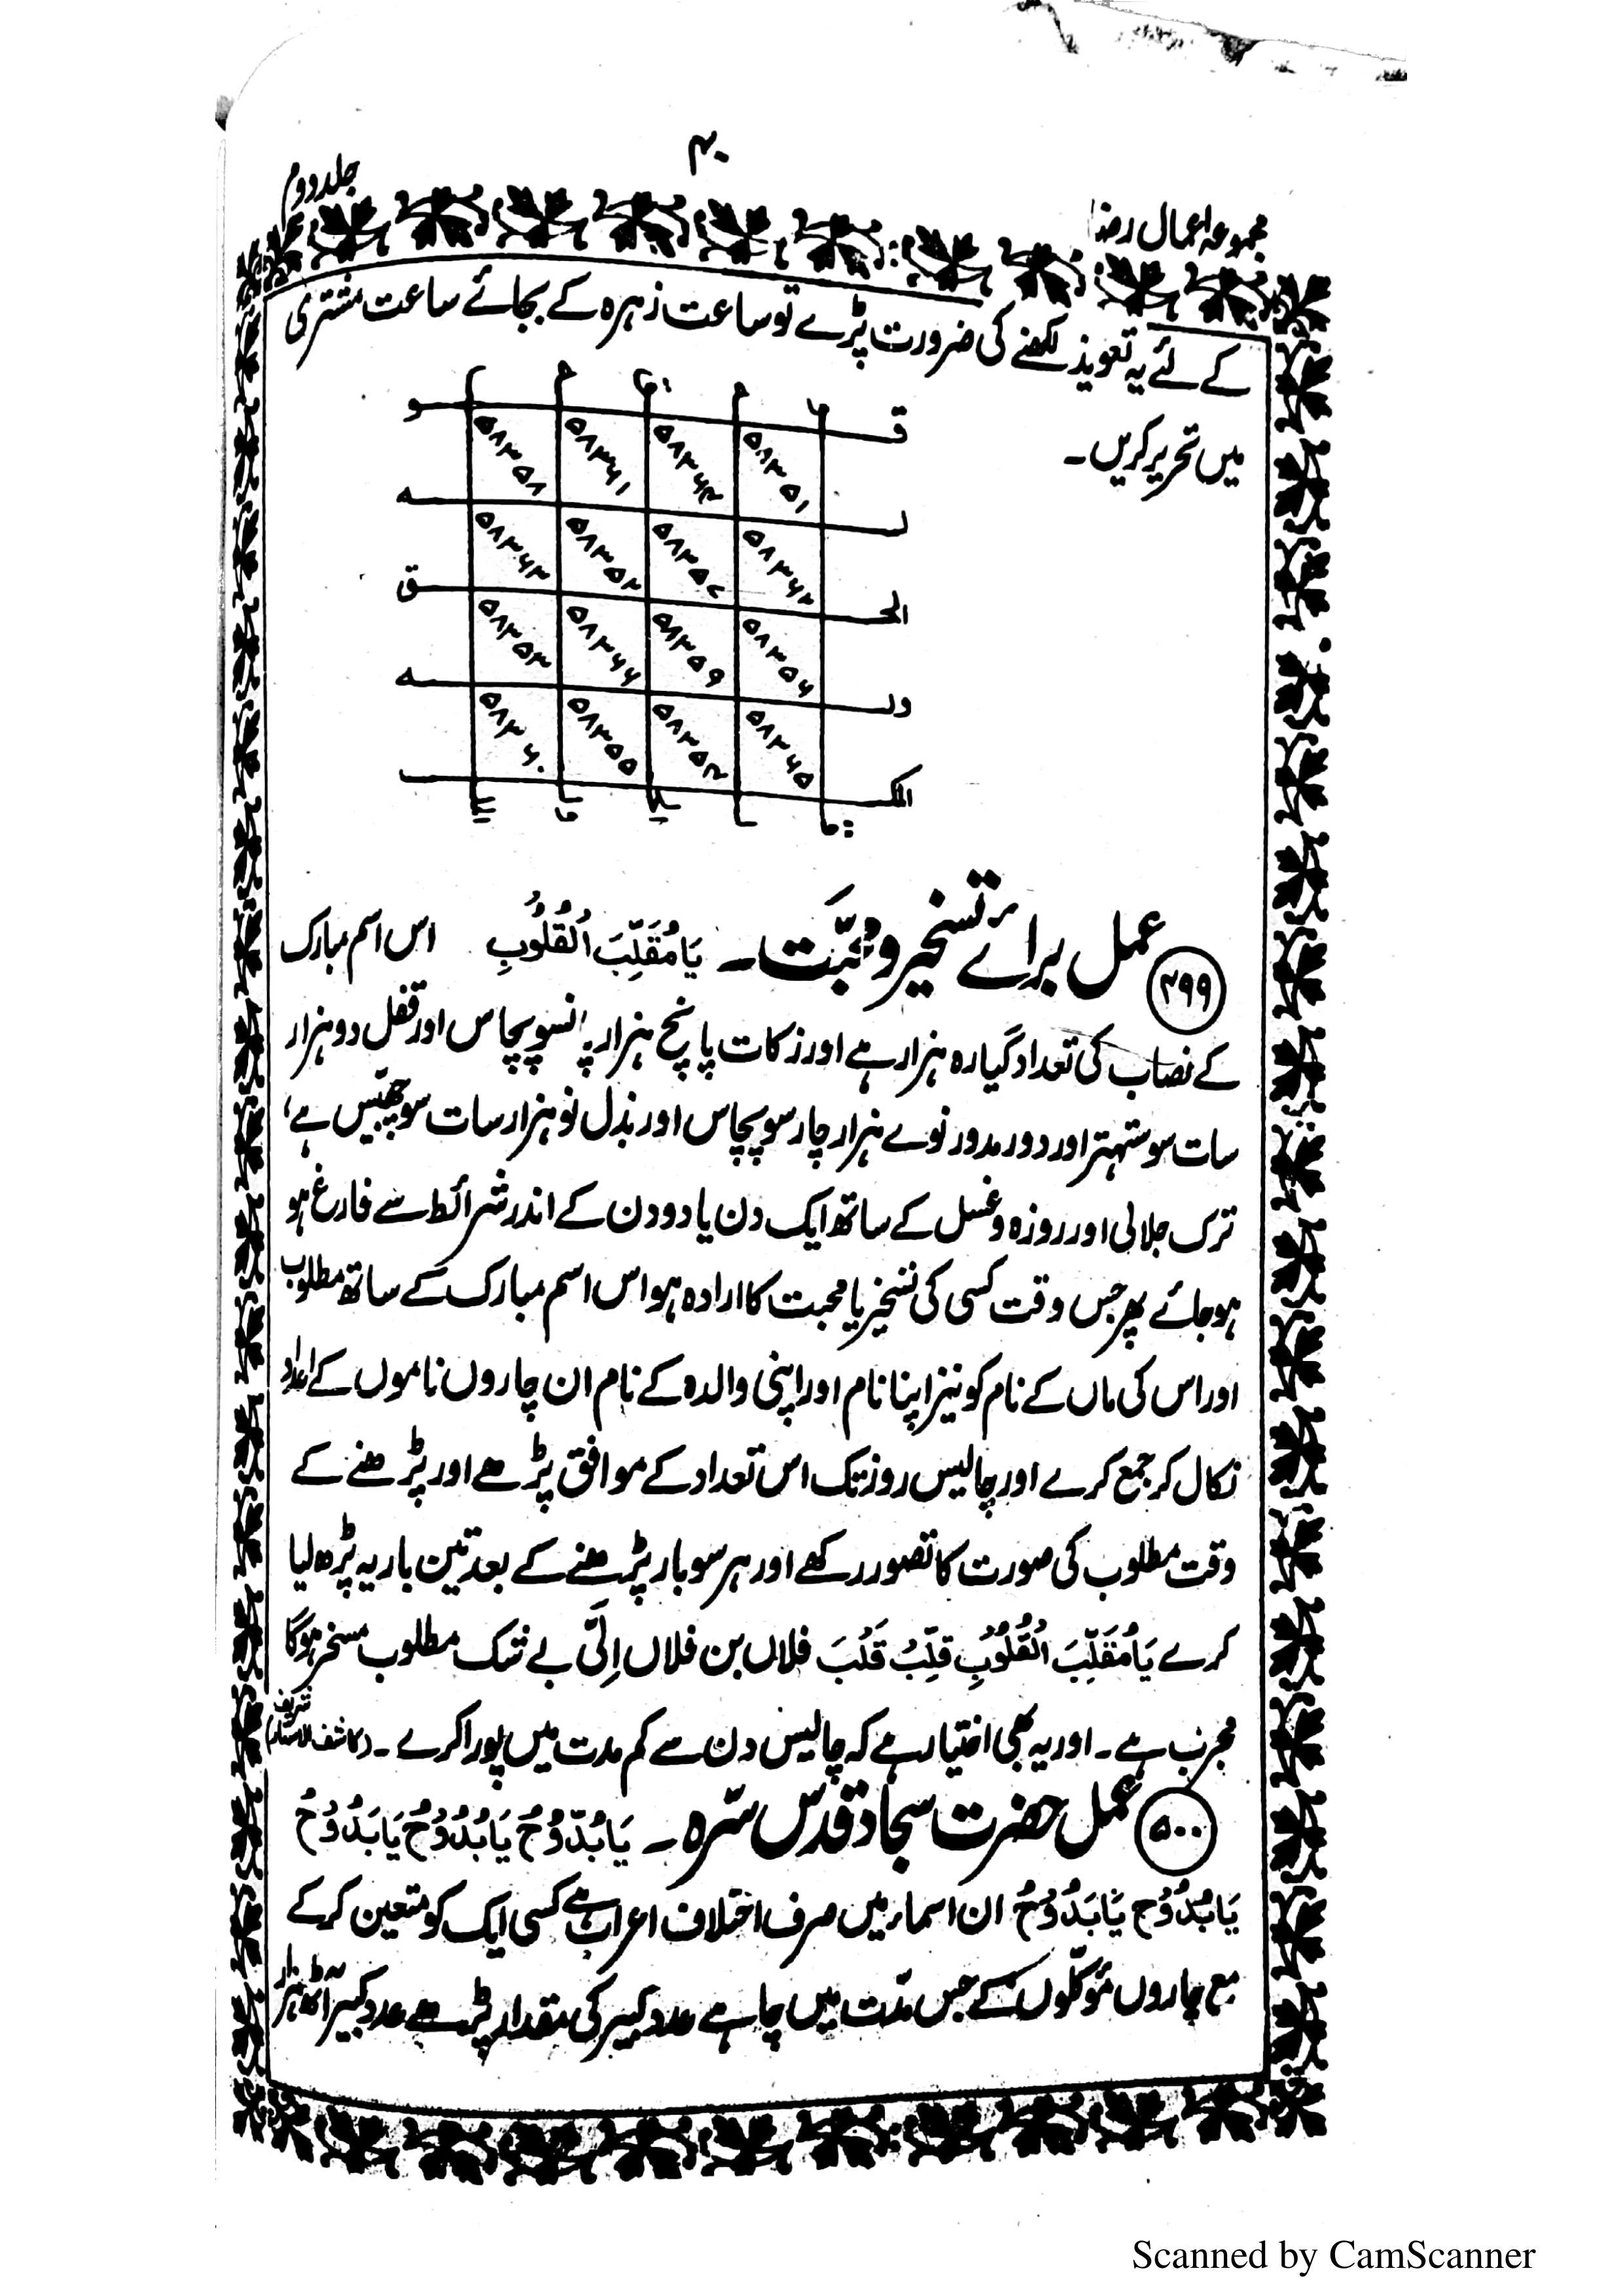 ۴۰
جلد دوم
مجموعہ اعمال رضا
کے لئے یہ تعویذ لکھنے کی ضرورت پڑے تو ساعت زہرہ کے بجائے ساعت مشتری
میں تحریر کریں۔
۵۸۳۵۸ ۵۸۳۶۱ ۵۸۳۶۴ ۵۸۳۵۱
۵۸۳۶۳ ۵۸۳۵۲ ۵۸۳۵۷ ۵۸۳۶۲
۵۸۳۵۳ ۵۸۳۶۶ ۵۸۳۵۹ ۵۸۳۵۶
۵۸۳۶۰ ۵۸۳۵۵ ۵۸۳۵۴ ۵۸۳۶۵
۴۹۹ عمل برائے تسخیر و محبّت۔ یَا مُقَلِّبَ الْقُلُوْبِ اس اسم مبارک
کے نصاب کی تعداد گیارہ ہزار ہے اور زکات پانچ ہزار پانسو پچاس اور قفل دو ہزار
سات سو ستہتر اور دور مدور نوے ہزار چار سو پچاس اور بذل نو ہزار سات سو چھبّیس ہے،
ترک جلالی اور روزہ و غسل کے ساتھ ایک دن یا دو دن کے اندر شرائط سے فارغ ہو
ہو جائے پھر جس وقت کسی کی تسخیر یا محبت کا ارادہ ہو اس اسم مبارک کے ساتھ مطلوب
اور اس کی ماں کے نام کو نیز اپنا نام اور اپنی والدہ کے نام ان چاروں ناموں کے اعداد
نکال کر جمع کرے اور چالیس روز تک اس تعداد کے موافق پڑھے اور پڑھنے کے
وقت مطلوب کی صورت کا تصور رکھے اور ہر سو بار پڑھنے کے بعد تین بار یہ پڑھ لیا
کرے یَا مُقَلِّبَ الْقُلُوْبِ قَلِّبْ قَلْبَ فلاں بن فلاں اِلَیَّ بے شک مطلوب مسخر ہوگا
مجرب ہے۔ اور یہ بھی اختیار ہے کہ چالیس دن سے کم مدت میں پورا کرے۔ (کاشف الاستار شریف)
۵۰۰ عمل حضرت سجاد قدس سّرہ۔ یَا بُدُّوْحُ یَا بُدُوْحُ یَا بَدُوْحُ
یَا بُدُّوْحُ یَا بَدُّوْحُ ان اسماء میں صرف اختلاف اعراب ہے کسی ایک کو متعین کر کے
مع چاروں مؤکّلوں کے جس مدّت میں چاہے عدد کبیر کی مقدار پڑھے عدد کبیر آٹھ ہزار
Scanned by CamScanner